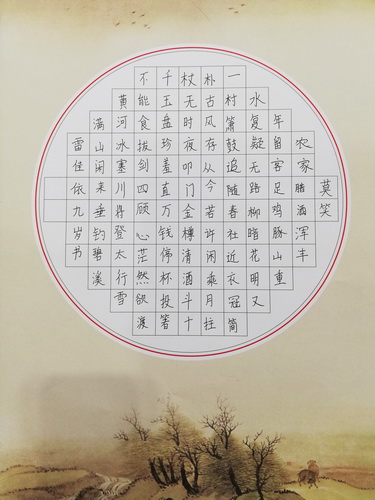 莫笑
农家腊酒浑丰
年留客足鸡豚山重
水复疑无路柳暗花明又
一村箫鼓追随春社近衣冠简
朴古风存从今若许闲乘月拄
杖无时夜叩门金樽清酒斗十
千玉盘珍羞直万钱停杯投箸
不能食拔剑四顾心茫然欲渡
黄河冰塞川将登太行雪
满山闲来垂钓碧溪
雷佳依九岁书